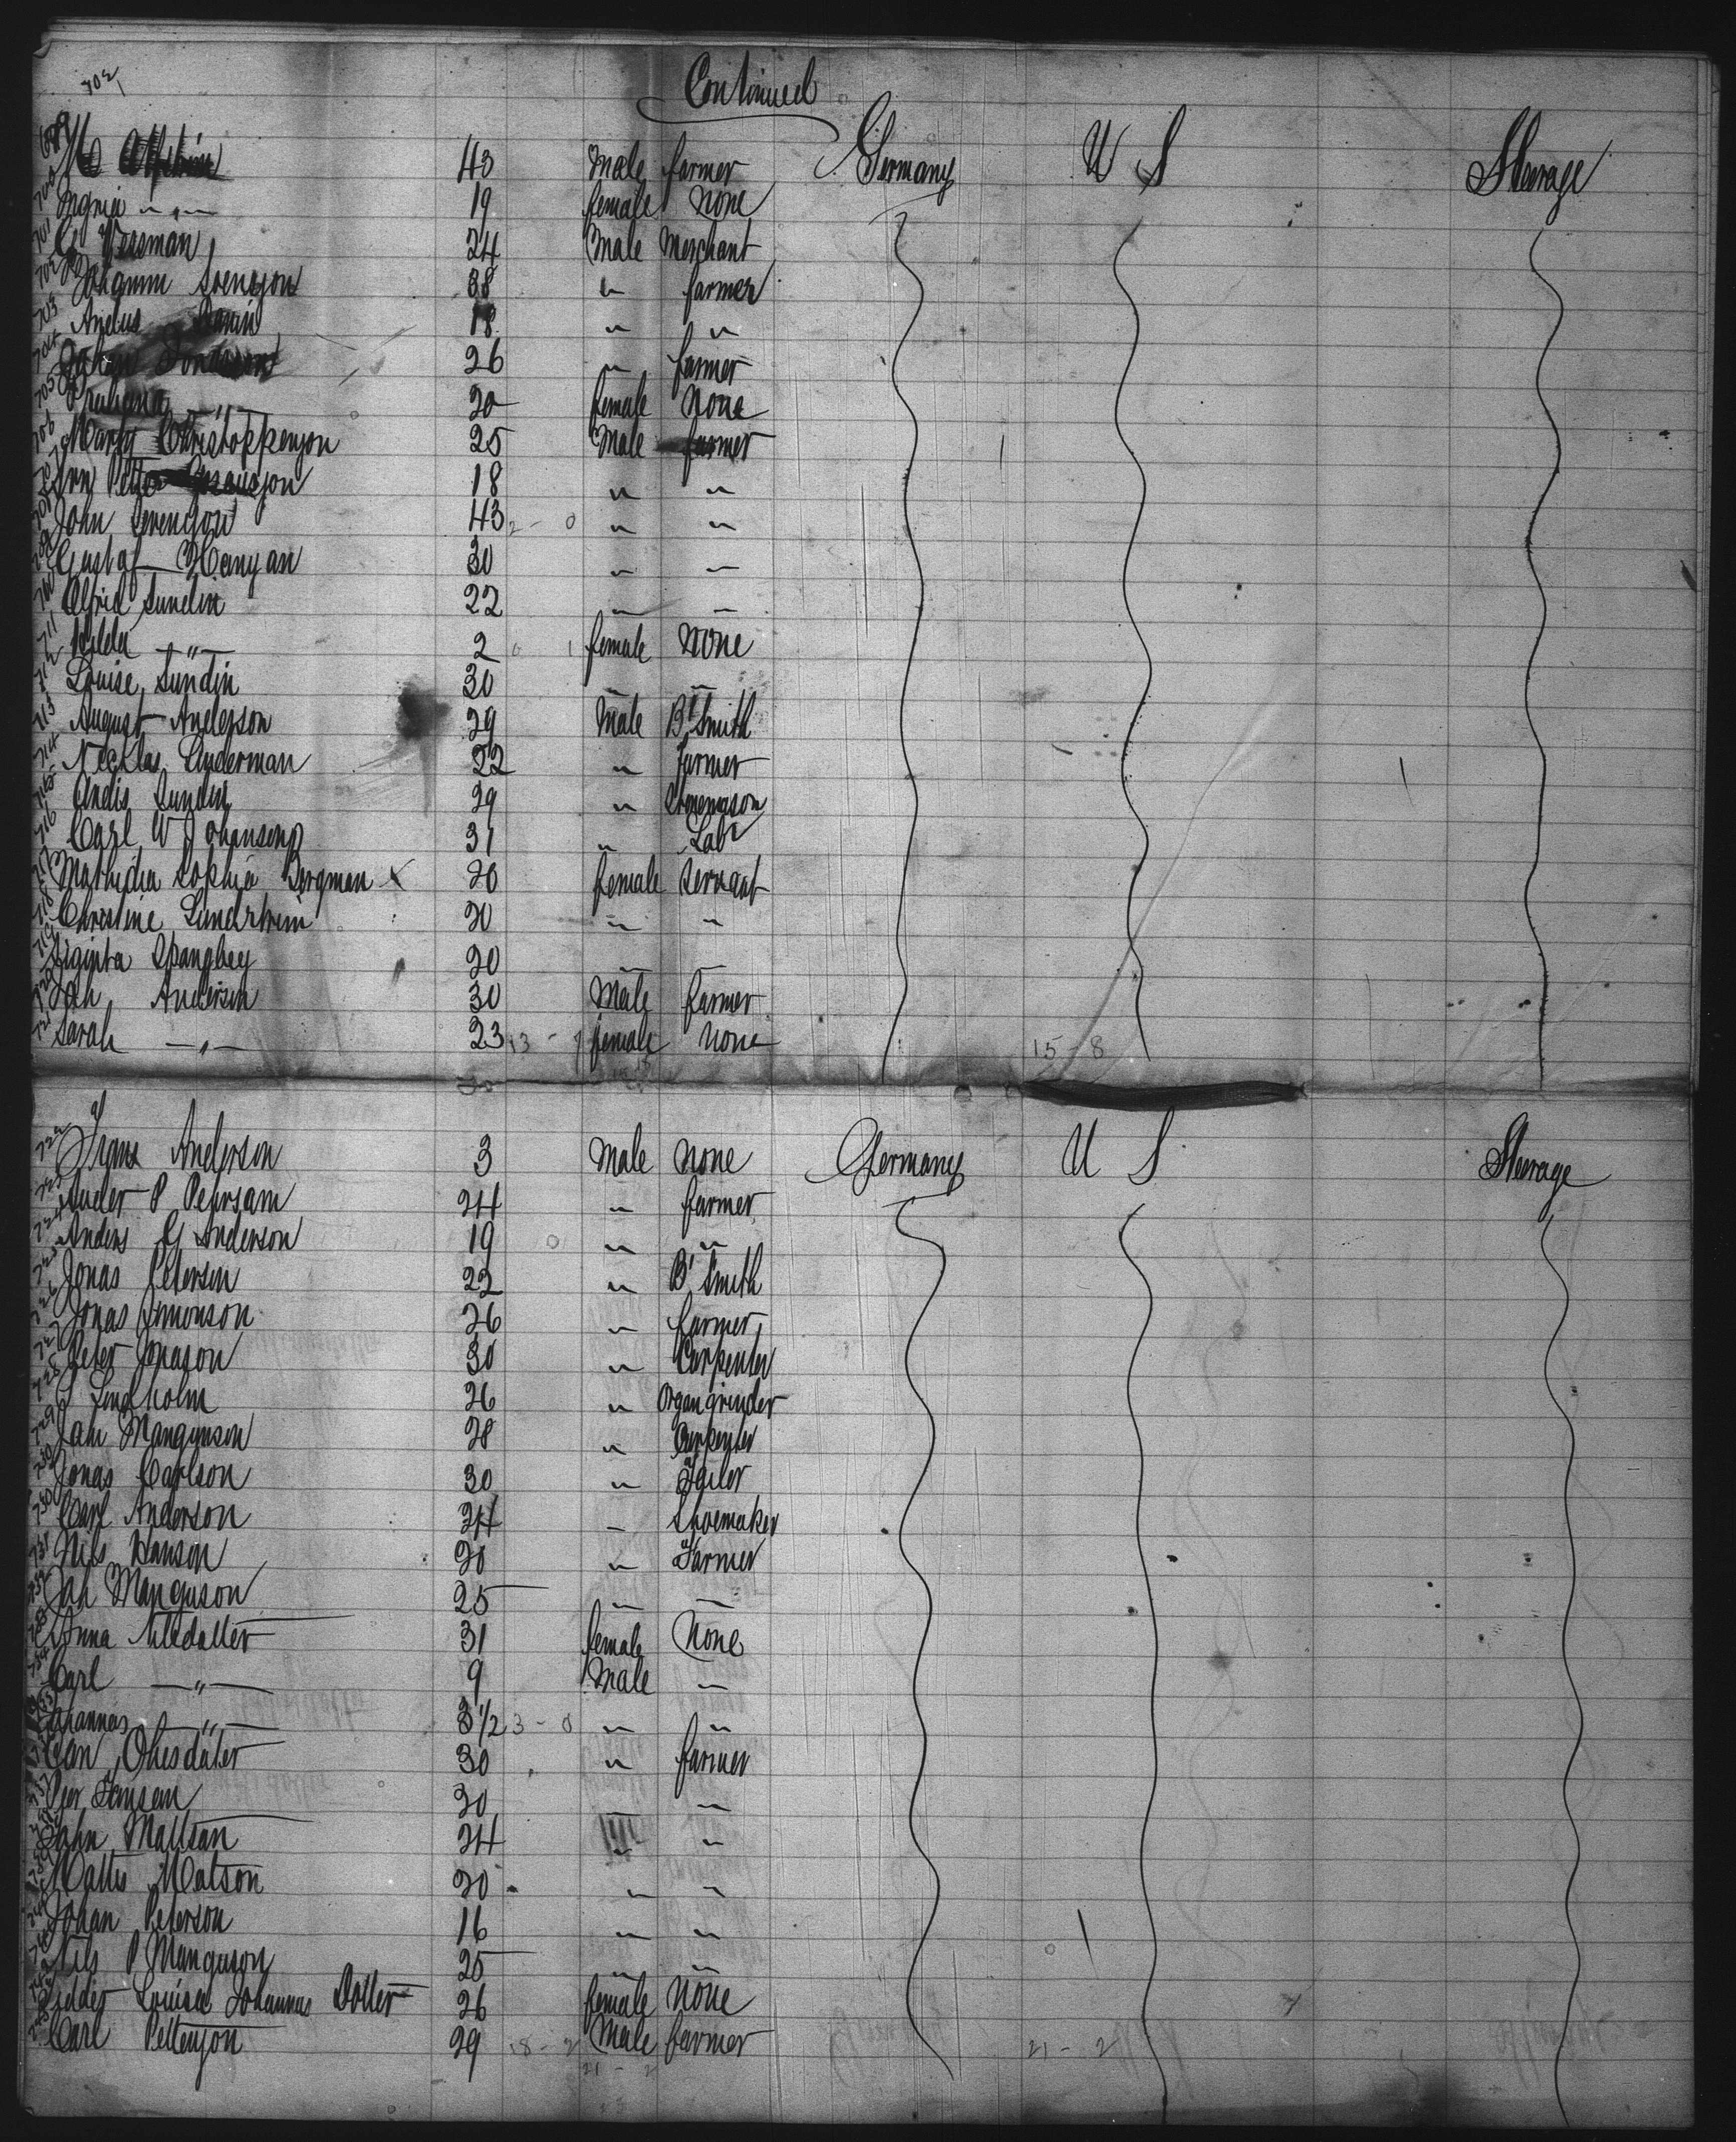 702
Continued
699 43 Male farmer Germany U S Steerage
700 Ingria " 19 female None
701 Wessman 24 Male Merchant
702 Johannn Svensson 38 " farmer
703 18 " "
704 26 " farmer
705 " 20 female None
706 Christoppenson 25 Male farmer
707 18 " "
708 John Svenson 43 2 - 0 " "
709 Gustaf 30 " "
710 Alfrid Sundin 22 " "
711 Hilda " 2 0 1 female None
712 Louise Sundin 30 " "
713 August Anderson 29 Male Bl Smith
714 Necklas Linderman 22 " farmer
715 Andis Sundin 29 " Stonemason
716 Carl W Johansson 31 " Labr
717 Mathidia Sophia Bergman x 20 female Servant
718 Christine 20 " "
719 Spangbey 20 " "
720 Joh Anderson 30 Male farmer
721 Sarah " 23 13 - 7 female None 15 - 8
722 Frans Anderson 3 Male None Germany U S Steerage
723 Ander P Pehrsam 24 " farmer
724 Anders G Anderson 19 " "
725 Jonas Peterson 22 " Bl Smith
726 Jonas Simonson 26 " farmer
727 Peter Jonason 30 " Carpenter
728 Lindholm 26 " Organgrinder
729 Jah Mangunson 28 " Carpenter
730 Jonas Carlson 30 " Tailor
730 Carl Anderson 24 " Shoemaker
731 Nils Hanson 20 " Farmer
732 Joh Manguson 25 " "
733 Anna Nilsdatter 31 female None
734 Carl " 9 Male "
735 Johannes " 3 1/2 3 - 0 " "
30 " farmer
737 Per Jansem 30 " "
738 John Mattson 24 " "
739 Matts Matson 20 " "
740 Johan Peterson 16 " "
741 Nils P Manguson 25 " "
742 Louisa Johannas Dotter 26 female None
743 Carl Pettenson 29 18 - 2 Male farmer 21 - 2
21 - 2